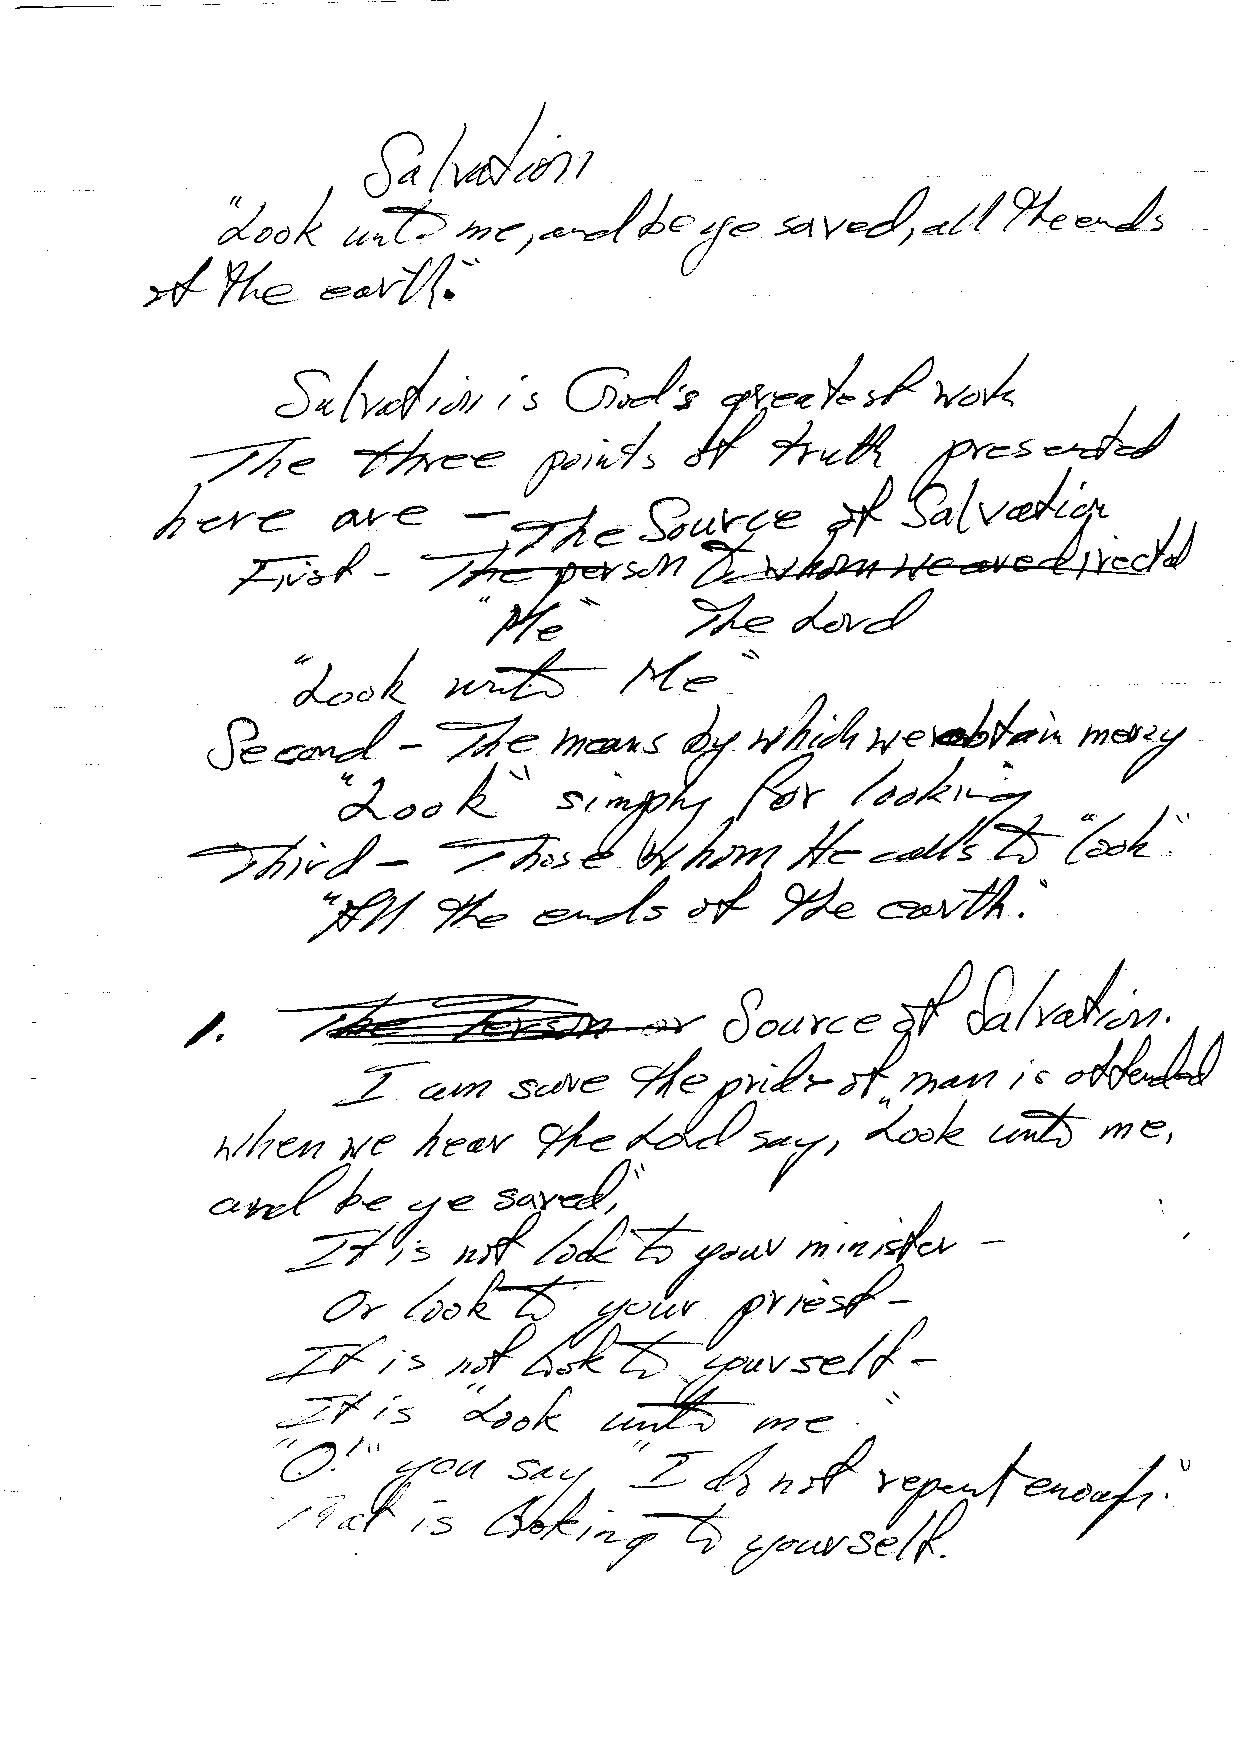 Salvation
"Look unto me, and be ye saved, all the ends
of the earth."
Salvation is God's greatest work
The three points of truth presented
here are - The Source of Salvation
First - The person to whom we are directed
"Me" The Lord
"Look unto Me"
Second - The means by which we obtain mercy
"Look" simply for looking
Third - Those whom He calls to "look".
"All the ends of the earth."
1. The Person or Source of Salvation.
I am sure the pride of man is offended
when we hear the Lord say, "Look unto me,
and be ye saved,"
It is not look to your minister -
Or look to your priest -
It is not look to yourself -
It is "Look unto me."
"O!" you say "I do not repent enough."
That is looking to yourself.